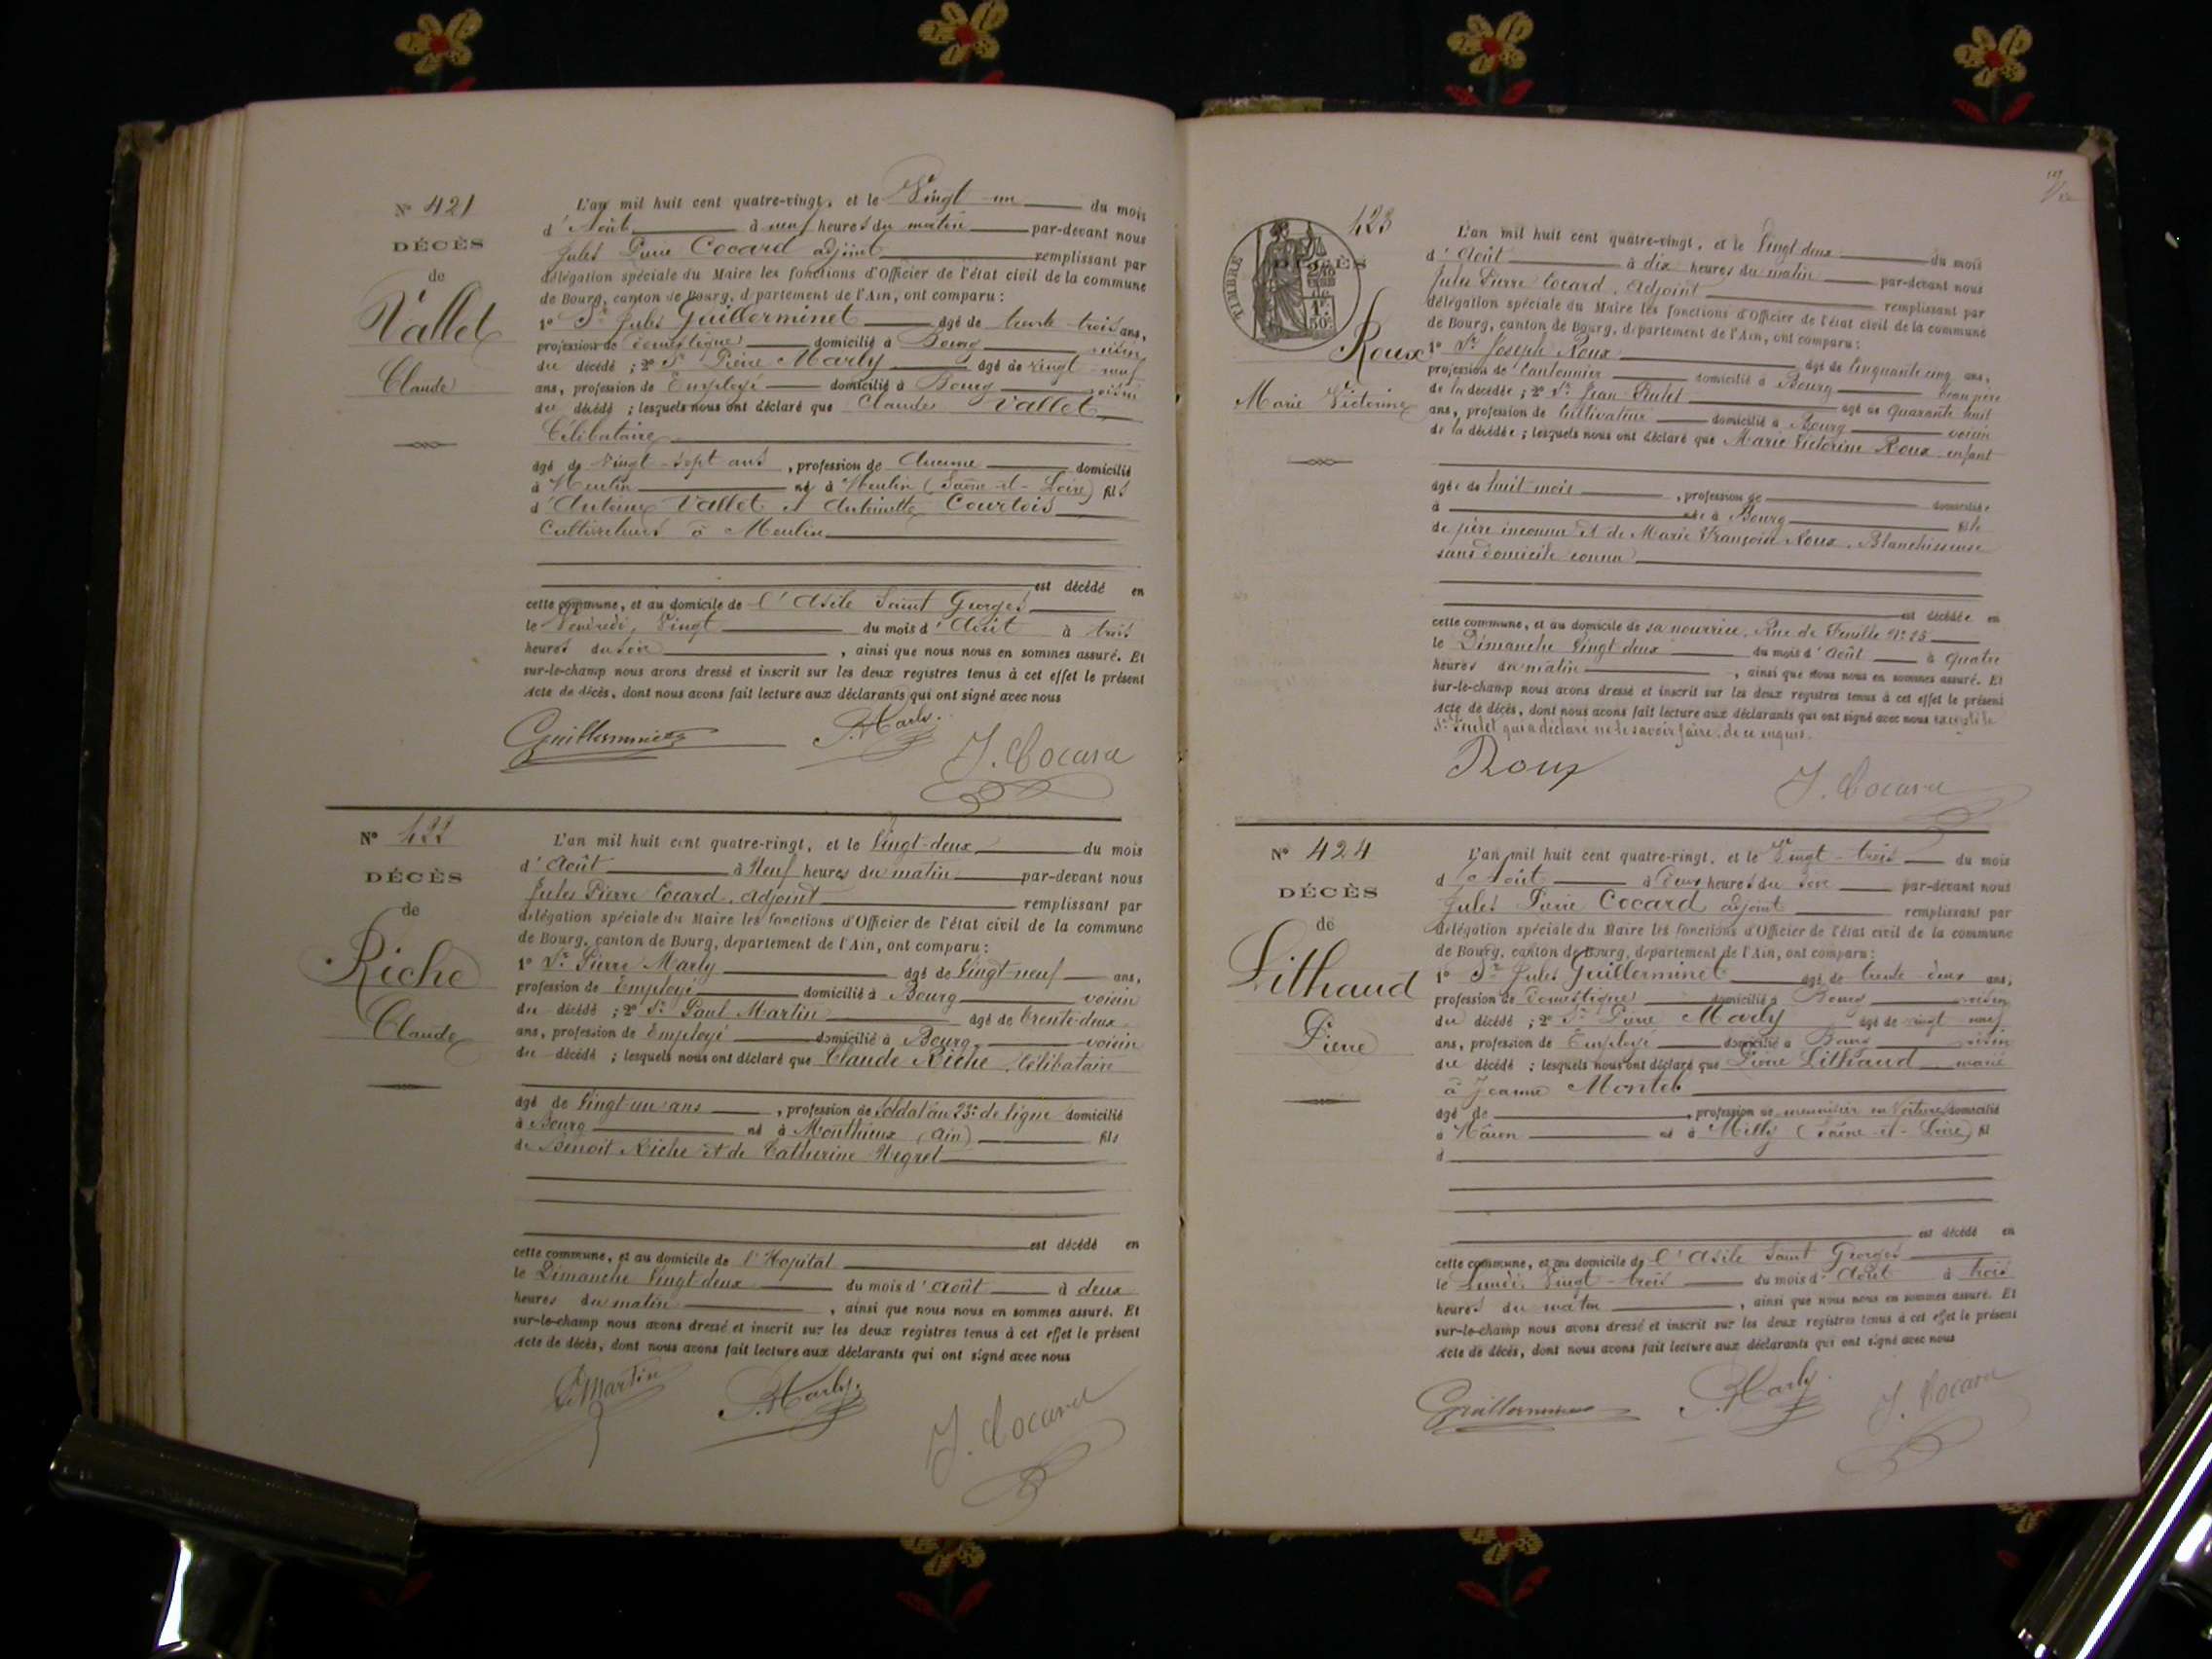 N° 421
DÉCÈS
de
Vallet
Claude
L'an mil huit cent quatre-vingt, et le Vingt-un du mois
d'Août à neuf heures du matin par-devant nous
Jules Pierre Cocard adjoint remplissant par
délégation spéciale du Maire les fonctions d'Officier de l'état civil de la commune
de Bourg, canton de Bourg, département de l'Ain, ont comparu :
1° Sr Jules Guillerminet âgé de trente-trois ans,
profession de domestique domicilié à Bourg voisin
du décédé ; 2° Sr Pierre Marly âgé de vingt-neuf
ans, profession de Employé domicilié à Bourg voisin
du décédé ; lesquels nous ont déclaré que Claude Vallet
Célibataire
âgé de vingt-sept ans, profession de Aucune domicilié
à Meulin né à Meulin (Saône-et-Loire) fils
d'Antoine Vallet et Antoinette Courtois
Cultivateurs à Meulin
est décédé en
cette commune, et au domicile de l'Asile Saint Georges
le Vendredi, Vingt du mois d'Août à trois
heures du soir, ainsi que nous nous en sommes assuré. Et
sur-le-champ nous avons dressé et inscrit sur les deux registres tenus à cet effet le présent
Acte de décès, dont nous avons fait lecture aux déclarants qui ont signé avec nous
Guillerminet P. Marly. J. Cocard
N° 422
DÉCÈS
de
Riche
Claude
L'an mil huit cent quatre-vingt, et le Vingt-deux du mois
d'Août à Neuf heures du matin par-devant nous
Jules Pierre Cocard, adjoint remplissant par
délégation spéciale du Maire les fonctions d'Officier de l'état civil de la commune
de Bourg, canton de Bourg, département de l'Ain, ont comparu :
1° Sr Pierre Marly âgé de Vingt-neuf ans,
profession de Employé domicilié à Bourg voisin
du décédé ; 2° Sr Paul Martin âgé de trente-deux
ans, profession de Employé domicilié à Bourg voisin
du décédé ; lesquels nous ont déclaré que Claude Riche, Célibataire
âgé de Vingt-un ans, profession de Soldat au 23e de ligne domicilié
à Bourg né à Monthieux (Ain) fils
de Benoit Riche et de Catherine Negret
est décédé en
cette commune, et au domicile de l'Hopital
le Dimanche Vingt deux du mois d'Août à deux
heures du matin, ainsi que nous nous en sommes assuré. Et
sur-le-champ nous avons dressé et inscrit sur les deux registres tenus à cet effet le présent
Acte de décès, dont nous avons fait lecture aux déclarants qui ont signé avec nous
P Martin P. Marly. J. Cocard
423
TIMBRE
DÉCÈS
de
1F
50c
Roux
Marie Victorine
L'an mil huit cent quatre-vingt, et le Vingt-deux du mois
d'Août à dix heures du matin par-devant nous
Jules Pierre Cocard, Adjoint remplissant par
délégation spéciale du Maire les fonctions d'Officier de l'état civil de la commune
de Bourg, canton de Bourg, département de l'Ain, ont comparu :
1° Sr Joseph Roux âgé de Cinquante cinq ans,
profession de Cantonnier domicilié à Bourg
de la décédée ; 2° Sr Jean âgé de Quarante huit
ans, profession de Cultivateur domicilié à Bourg voisin
de la décédée ; lesquels nous ont déclaré que Marie Victorine Roux, enfant
âgée de huit mois, profession de domiciliée
à née à Bourg fille
de père inconnu et de Marie Françoise Roux, Blanchisseuse
sans domicile connu
est décédée en
cette commune, et au domicile de sa nourrice, Rue de N° 25
le Dimanche Vingt deux du mois d'Août à Quatre
heures du matin, ainsi que nous nous en sommes assuré. Et
sur-le-champ nous avons dressé et inscrit sur les deux registres tenus à cet effet le présent
Acte de décès, dont nous avons fait lecture aux déclarants qui ont signé avec nous excepté le
Sr qui a déclaré ne le savoir faire, de ce enquis.
Roux J. Cocard
N° 424
DÉCÈS
de
Lithaud
Pierre
L'an mil huit cent quatre-vingt, et le Vingt-trois du mois
d'Août à deux heures du soir par-devant nous
Jules Pierre Cocard adjoint remplissant par
délégation spéciale du Maire les fonctions d'Officier de l'état civil de la commune
de Bourg, canton de Bourg, département de l'Ain, ont comparu :
1° Sr Jules Guillerminet âgé de trente-deux ans,
profession de domestique domicilié à Bourg voisin
du décédé ; 2° Sr Pierre Marly âgé de vingt neuf
ans, profession de Employé domicilié à Bourg voisin
du décédé ; lesquels nous ont déclaré que Pierre Lithaud marié
à Jeanne Montel
âgé de, profession de menuisier en voitures domicilié
à Mâcon né à Milly (Saône-et-Loire) fil
d
est décédé en
cette commune, et au domicile de l'Asile Saint Georges
le Lundi, Vingt-trois du mois d'Août à trois
heures du matin, ainsi que nous nous en sommes assuré. Et
sur-le-champ nous avons dressé et inscrit sur les deux registres tenus à cet effet le présent
Acte de décès, dont nous avons fait lecture aux déclarants qui ont signé avec nous
Guillerminet P. Marly. J. Cocard